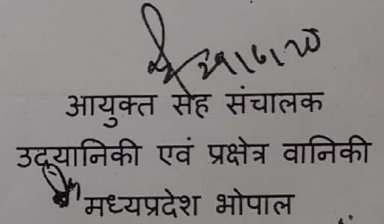 आयुक्त सह संचालक
उद्यानिकी एवं प्रक्षेत्र वानिकी
मध्यप्रदेश भोपाल